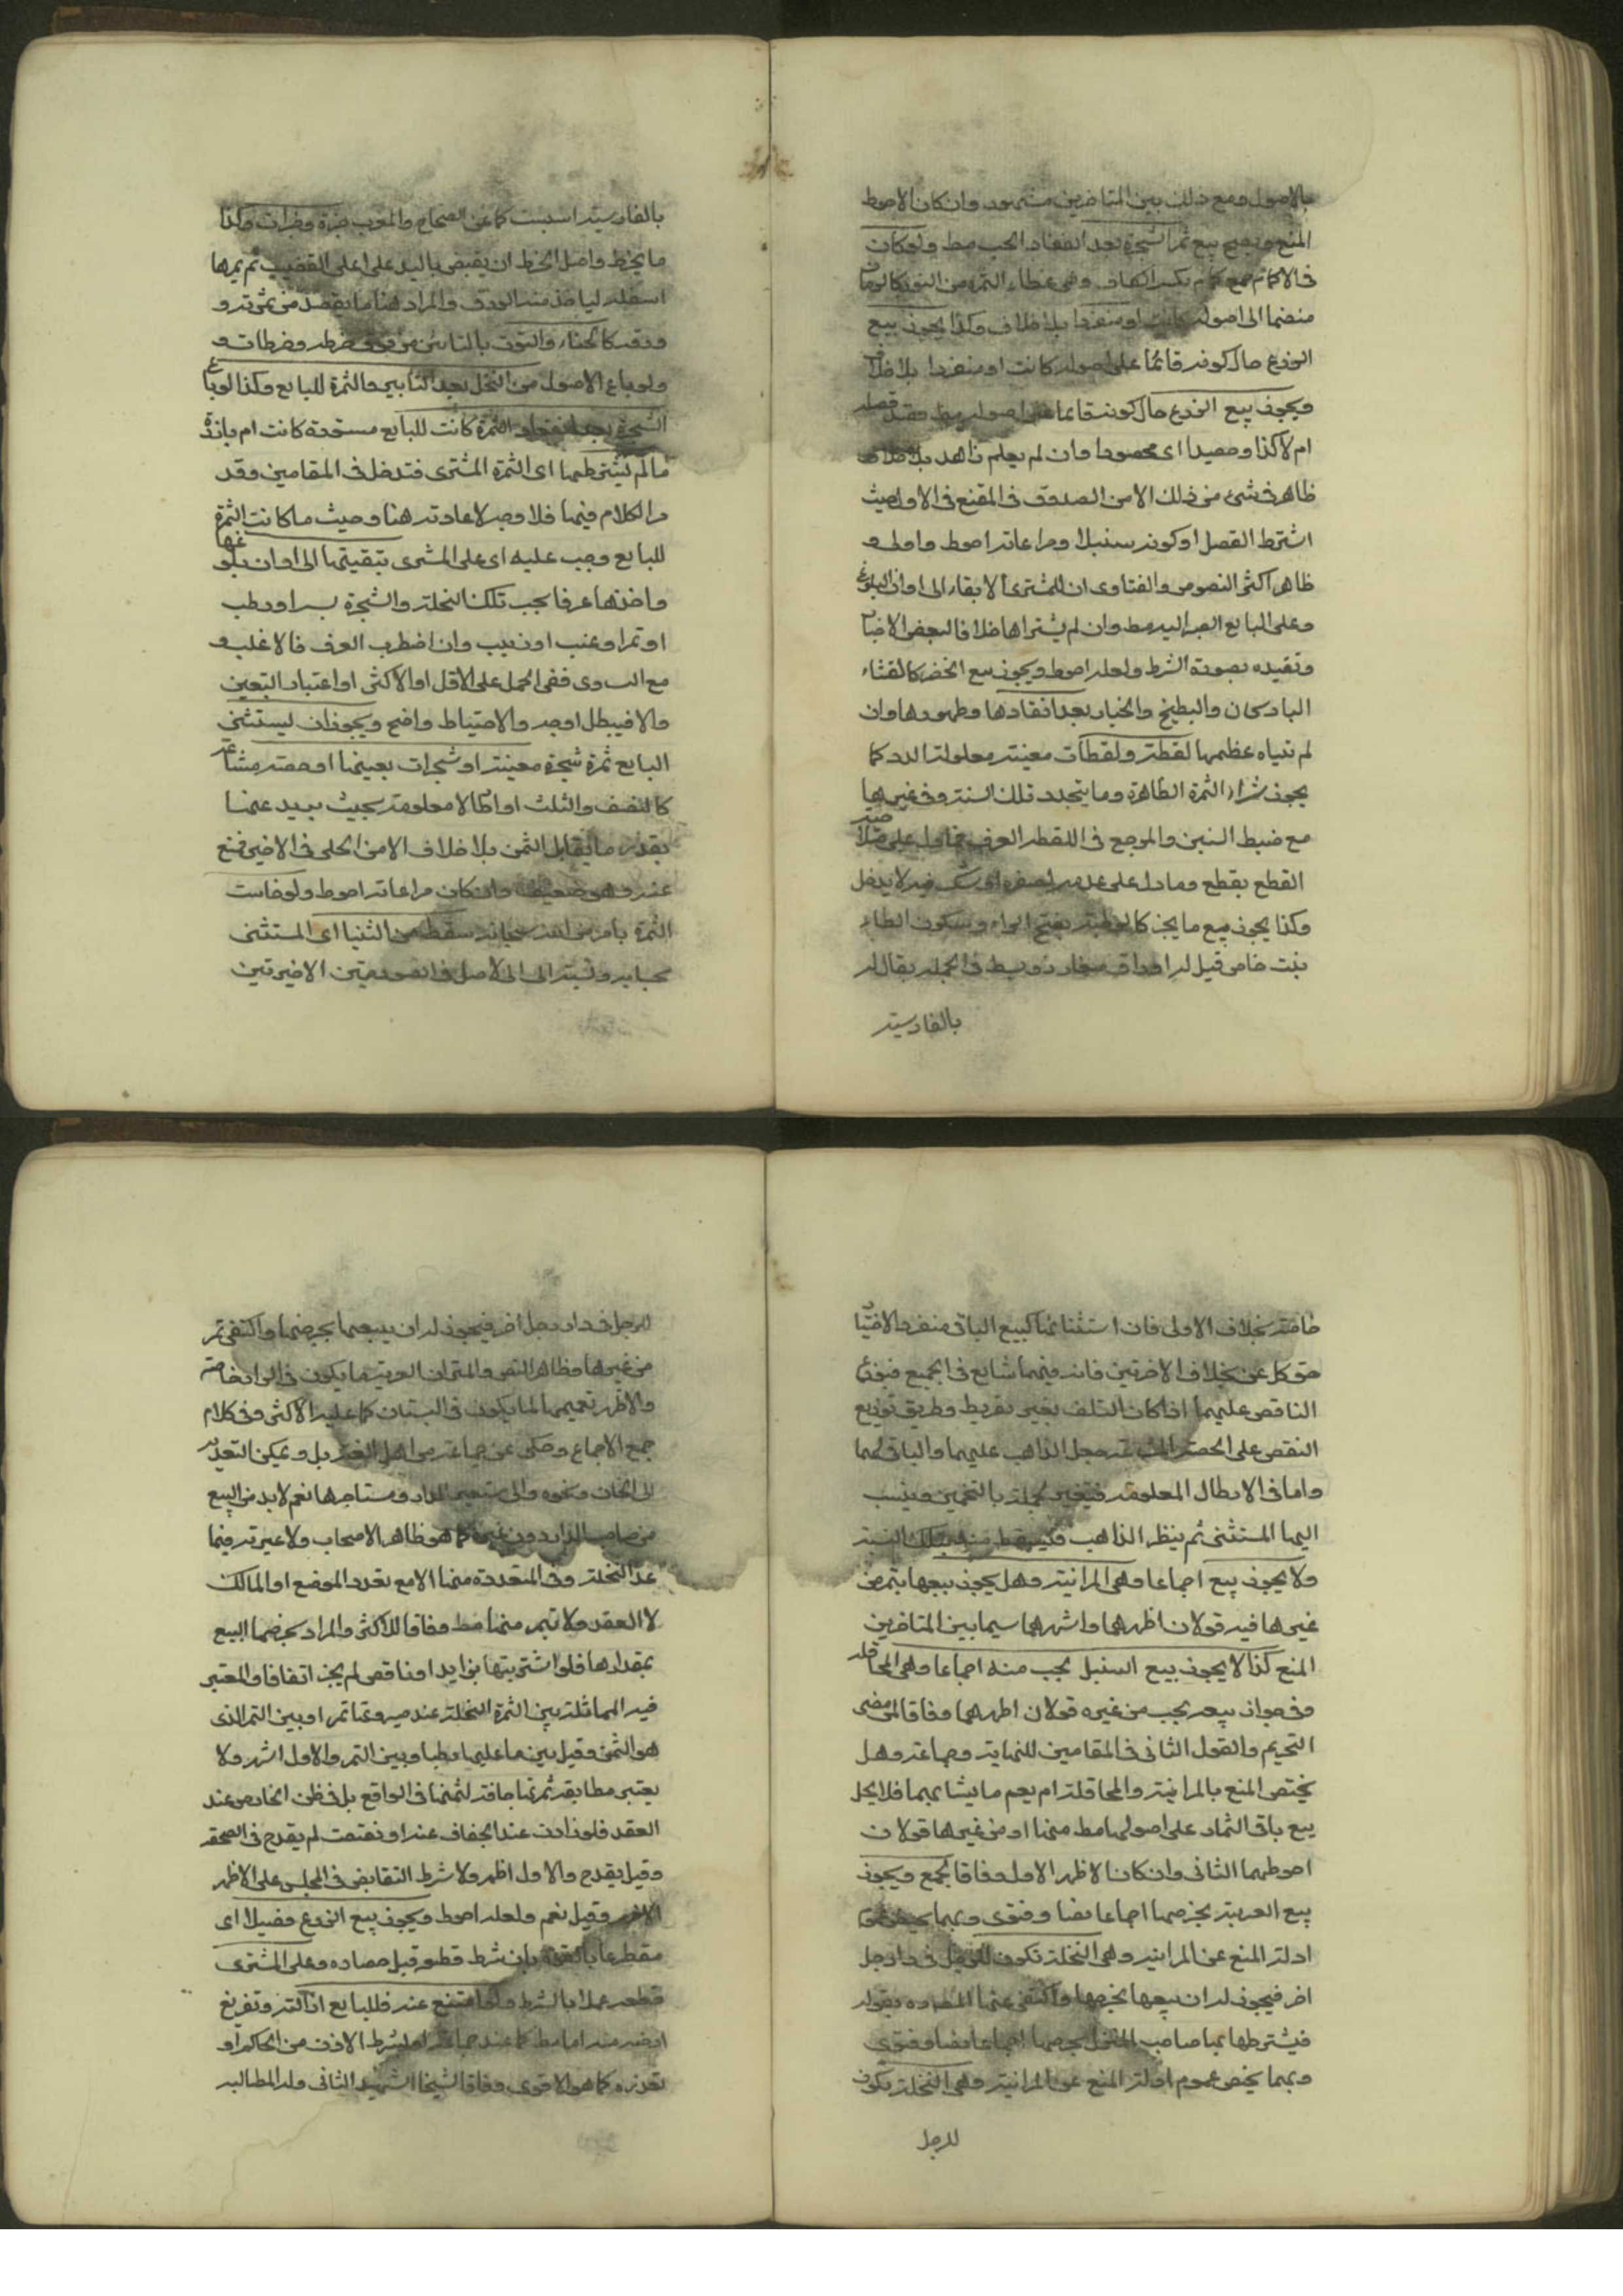 بالاصول ومع ذلك بين المتاخرين مشهور وان كان الاحوط
المنع ويصح بيع ثمرا لشجرة بعد انعقاد الحب مط ولو كان
فى الاكمام جمع كم بكسر الكاف وهى غطاء الثمرة من النور كالرمان
منضما الى اصوله كانت او منفردا بلا خلاف وكذا يجوز بيع
الزرع حال كونه قائما على اصوله كانت او منفردا بلا خلاف
ويجوز بيع الزرع حال كونه قائما على اصوله مط قصد قصله
ام لا كذا وحصيدا اى محصودا وان لم يعلم بلا خلاف
ظاهر فى شئ من ذلك الا من الصدوق فى المقنع فى الاول حيث
اشترط القصل او كونه سنبلا ومراعاته احوط واولى و
ظاهر اكثر النصوص والفتاوى ان للمشترى الابقاء الى اوان البلوغ
وعلى البايع الصبر اليه مط وان لم يشترط خلافا لبعض الاخبار
وتقيده بصورة الشرط ولعله احوط ويجوز بيع الخضر كالقثاء
البادنجان والبطيخ والخيار بعد انعقادها وظهورها وان
لم تتناه عظمها لقطة ولقطات معينة معلولة العدد كما
يجوز شراء الثمرة الظاهرة وما يتجدد تلك السنة وفى غيرها
مع ضبط السنين والمرجع فى اللقطة العرف فما دل على صلاحيته
القطع يقطع وما دل على عدمه لصغره او شك فيه لا يدخل
وكذا يجوز بيع ما يجز كالرطبة بفتح الراء وسكون الطاء
نبت خاص قيل له اوراق صغار وبسط فى الجملة يقال له
بالفارسية
بالفارسية اسبست كما عن الصحاح والمغرب جزة وجزات وكذا
ما يخرط واصل الخرط ان يقبض باليد على اعلى القضيب ثم يمرها
اسفله لياخذ منه الورق والمراد هنا ما يقصد من ثمرته و
ورقه كالحناء والتوت بالتائين من فوق خرطة وخرطات و
ولو باع الاصول من النخل بعد التابير فالثمرة للبايع وكذا لو باع
الشجرة بعد انعقاد الثمرة كانت للبايع مستحدة كانت ام بارزة
ما لم يشترطها اى الثمرة المشترى فتدخل فى المقامين وقد
مر الكلام فيها فلا وجه لاعادته هنا وحيث ما كانت الثمرة
للبايع وجب عليه اى على المشترى تبقيتها الى اوان بلوغها
واخذها عرفا بحسب تلك النخلة والشجرة بسرا ورطب
او تمر او عنب او زبيب وان اضطرب العرف فالاغلب و
مع التساوى ففى الحمل على الاقل او الاكثر او اعتبار التعيين
والا فيبطل اوجه والاحتياط واضح ويجوز ان يستثنى
البايع ثمرة شجرة معينة او شجرات بعينها او حصة مشاعة
كالنصف والثلث او ارطالا معلومة بحيث يزيد عنها
بقدر ما يقابل الثمن بلا خلاف الا من الحلبى فى الاخير فمنع
عنه وهو ضعيف وان كان مراعاته احوط ولو خاست
الثمرة بامر من الله سبحانه سقط من الثنيا اى المستثنى
بحسابه ونسبته الى الاصل فى الصورتين الاخيرتين
خاصة بخلاف الاولى فان استثنائها كبيع الباقى منفردا لاختيار
حق كل عن بخلاف الاخرتين فانه فيهما شايع فى الجميع فيوزع
الناقص عليهما اذا كان التلف بغير تفريط وطريق توزيع
النقص على الحصة المشاعة جعل الذاهب عليهما والباقى لهما
واما فى الارطال المعلومة فيعتبر الجملة بالتخمين وينسب
اليها المستثنى ثم ينظر الذاهب فيسقط منه بتلك النسبة
ولا يجوز بيع اجماعا وهى المزابنة وهل يجوز بيعها بتمر من
غيرها فيه قولان اظهرهما واشهرهما سيما بين المتاخرين
المنع كذا لا يجوز بيع السنبل بحب منه اجماعا وهى المحاقلة
وفى جواز بيعه بحب من غيره قولان اظهرهما وفاقا لمن مضى
التحريم والقول الثانى فى المقامين للنهاية وجماعة وهل
يختص المنع بالمزابنة والمحاقلة ام يعم ما يشابههما فلا يحل
بيع باقى الثمار على اصولها مط منها او من غيرها قولان
احوطهما الثانى وان كان الاظهر الاول وفاقا لجمع ويجوز
بيع العرية بخرصها اجماعا نصا وفتوى وبهما يخص عموم
ادلة المنع عن المزابنة وهى النخلة تكون للرجل فى دار رجل
اخر فيجوز له ان يبيعها بخرصها واكتفى عنها المص ره بقوله
فيشترطها بها صاحب المنزل بخرصها اجماعا نصا وفتوى
وبهما يخص عموم ادلة المنع عن المزابنة وهى النخلة تكون
للرجل
للرجل فى دار رجل اخر فيجوز له ان يبيعها بخرصها واكتفى تمر
من غيرها وظاهر النص والمتن ان العرية ما يكون فى الدار خاصة
والاظهر تعميمها لما يكون فى البستان كما عليه الاكثر وفى كلام
جمع الاجماع وحكى عن جماعة من اهل اللغة بل ويمكن التعدية
الى الخان ونحوه والى مستعير الدار ومستاجرها نعم لابد من البيع
من صاحب الدار دون غيره كما هو ظاهر الاصحاب ولا عرية فيما
عد النخلة وفى المتعددة منها الا مع تعدد الموضع او المالك
لا العقد ولا تبر منها مط وفاقا للاكثر والمراد بخرصها البيع
بمقدارها فلو اشتريتها بزايد او ناقص لم يجز اتفاقا والمعتبر
فيه المماثلة بين الثمرة النخلة عند صيرورتها تمرا وبين التمر الذى
هو الثمن وقيل بين ما عليها رطبا وبين التمر والاول اشهر ولا
يعتبر مطابقة ثمرتها جافة لثمنها فى الواقع بل فى ظن الخارص عند
العقد فلو زادت عند الجفاف عنه او نقصت لم يقدح فى الصحة
وقيل يقدح والاول اظهر ولا شرط التقابض فى المجلس على الاظهر
الاشهر وقيل نعم ولعله احوط ويجوز بيع الزرع قصيلا اى
مقطوعا بالقوة بان شرط قطعه قبل حصاده وعلى المشترى
قطعه عملا بالشرط ولو امتنع عنه فللبايع ازالته وتفريغ
ارضه منه اما مط كما عند جماعة او بشرط الاذن من الحاكم او
تعذره كما هو الاقوى وفاقا لشيخنا الشهيد الثانى وله المطالبة